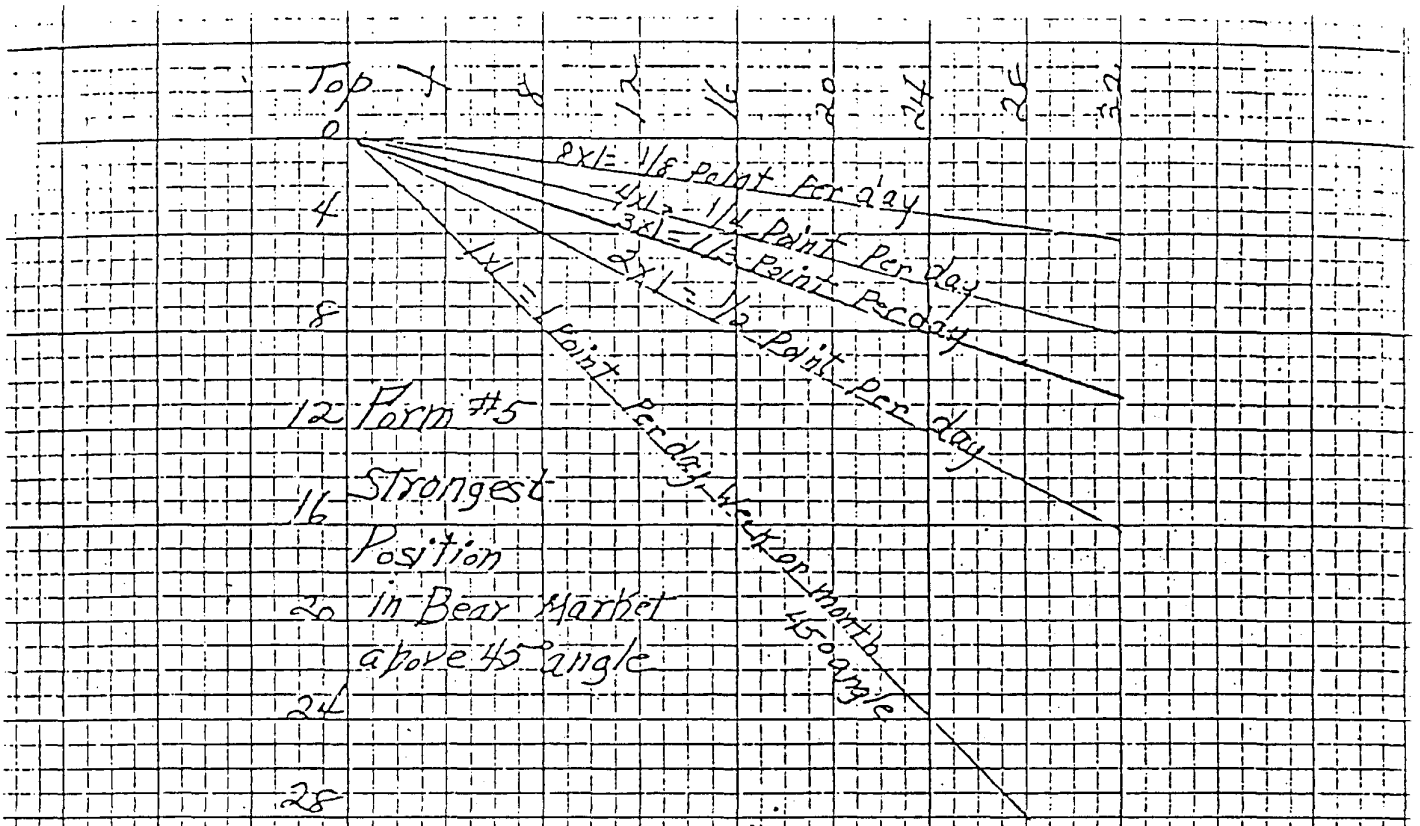 Top 4 8 12 16 20 24 28 32
0
8x1= 1/8 Point Per day
4
4x1= 1/4 Point Per day
3x1= 1/3 Point Per day
2x1= 1/2 Point Per day
1x1= 1 Point Per day, Week or month
45° angle
8
12 Form #5
16 Strongest
Position
20 in Bear Market
above 45° angle
24
28